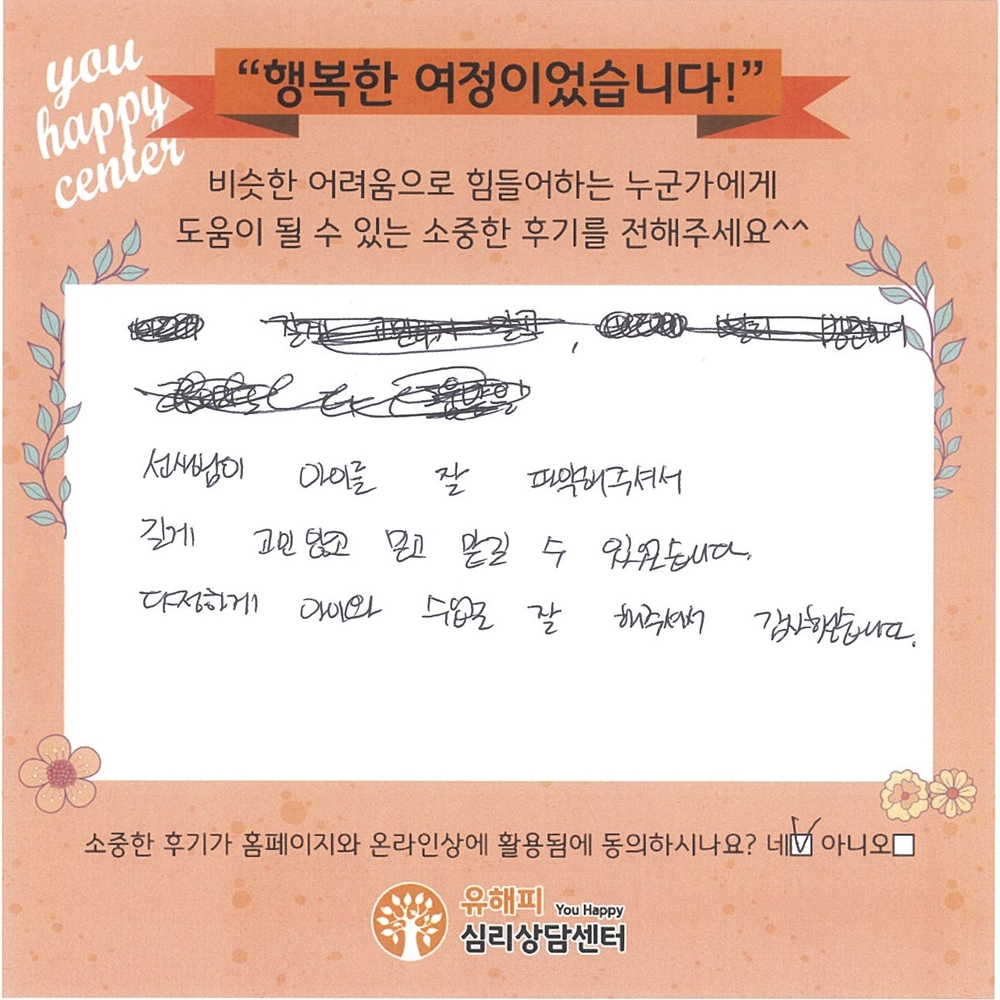 you
happy
center
“행복한 여정이었습니다!”
비슷한 어려움으로 힘들어하는 누군가에게
도움이 될 수 있는 소중한 후기를 전해주세요^^
길게 고민하지 말고,
선생님이 아이를 잘 파악해주셔서
길게 고민 않고 믿고 맡길 수 있었습니다.
다정하게 아이와 수업도 잘 해주셔서 감사했습니다.
소중한 후기가 홈페이지와 온라인상에 활용됨에 동의하시나요? 네 아니오
유해피 You Happy
심리상담센터